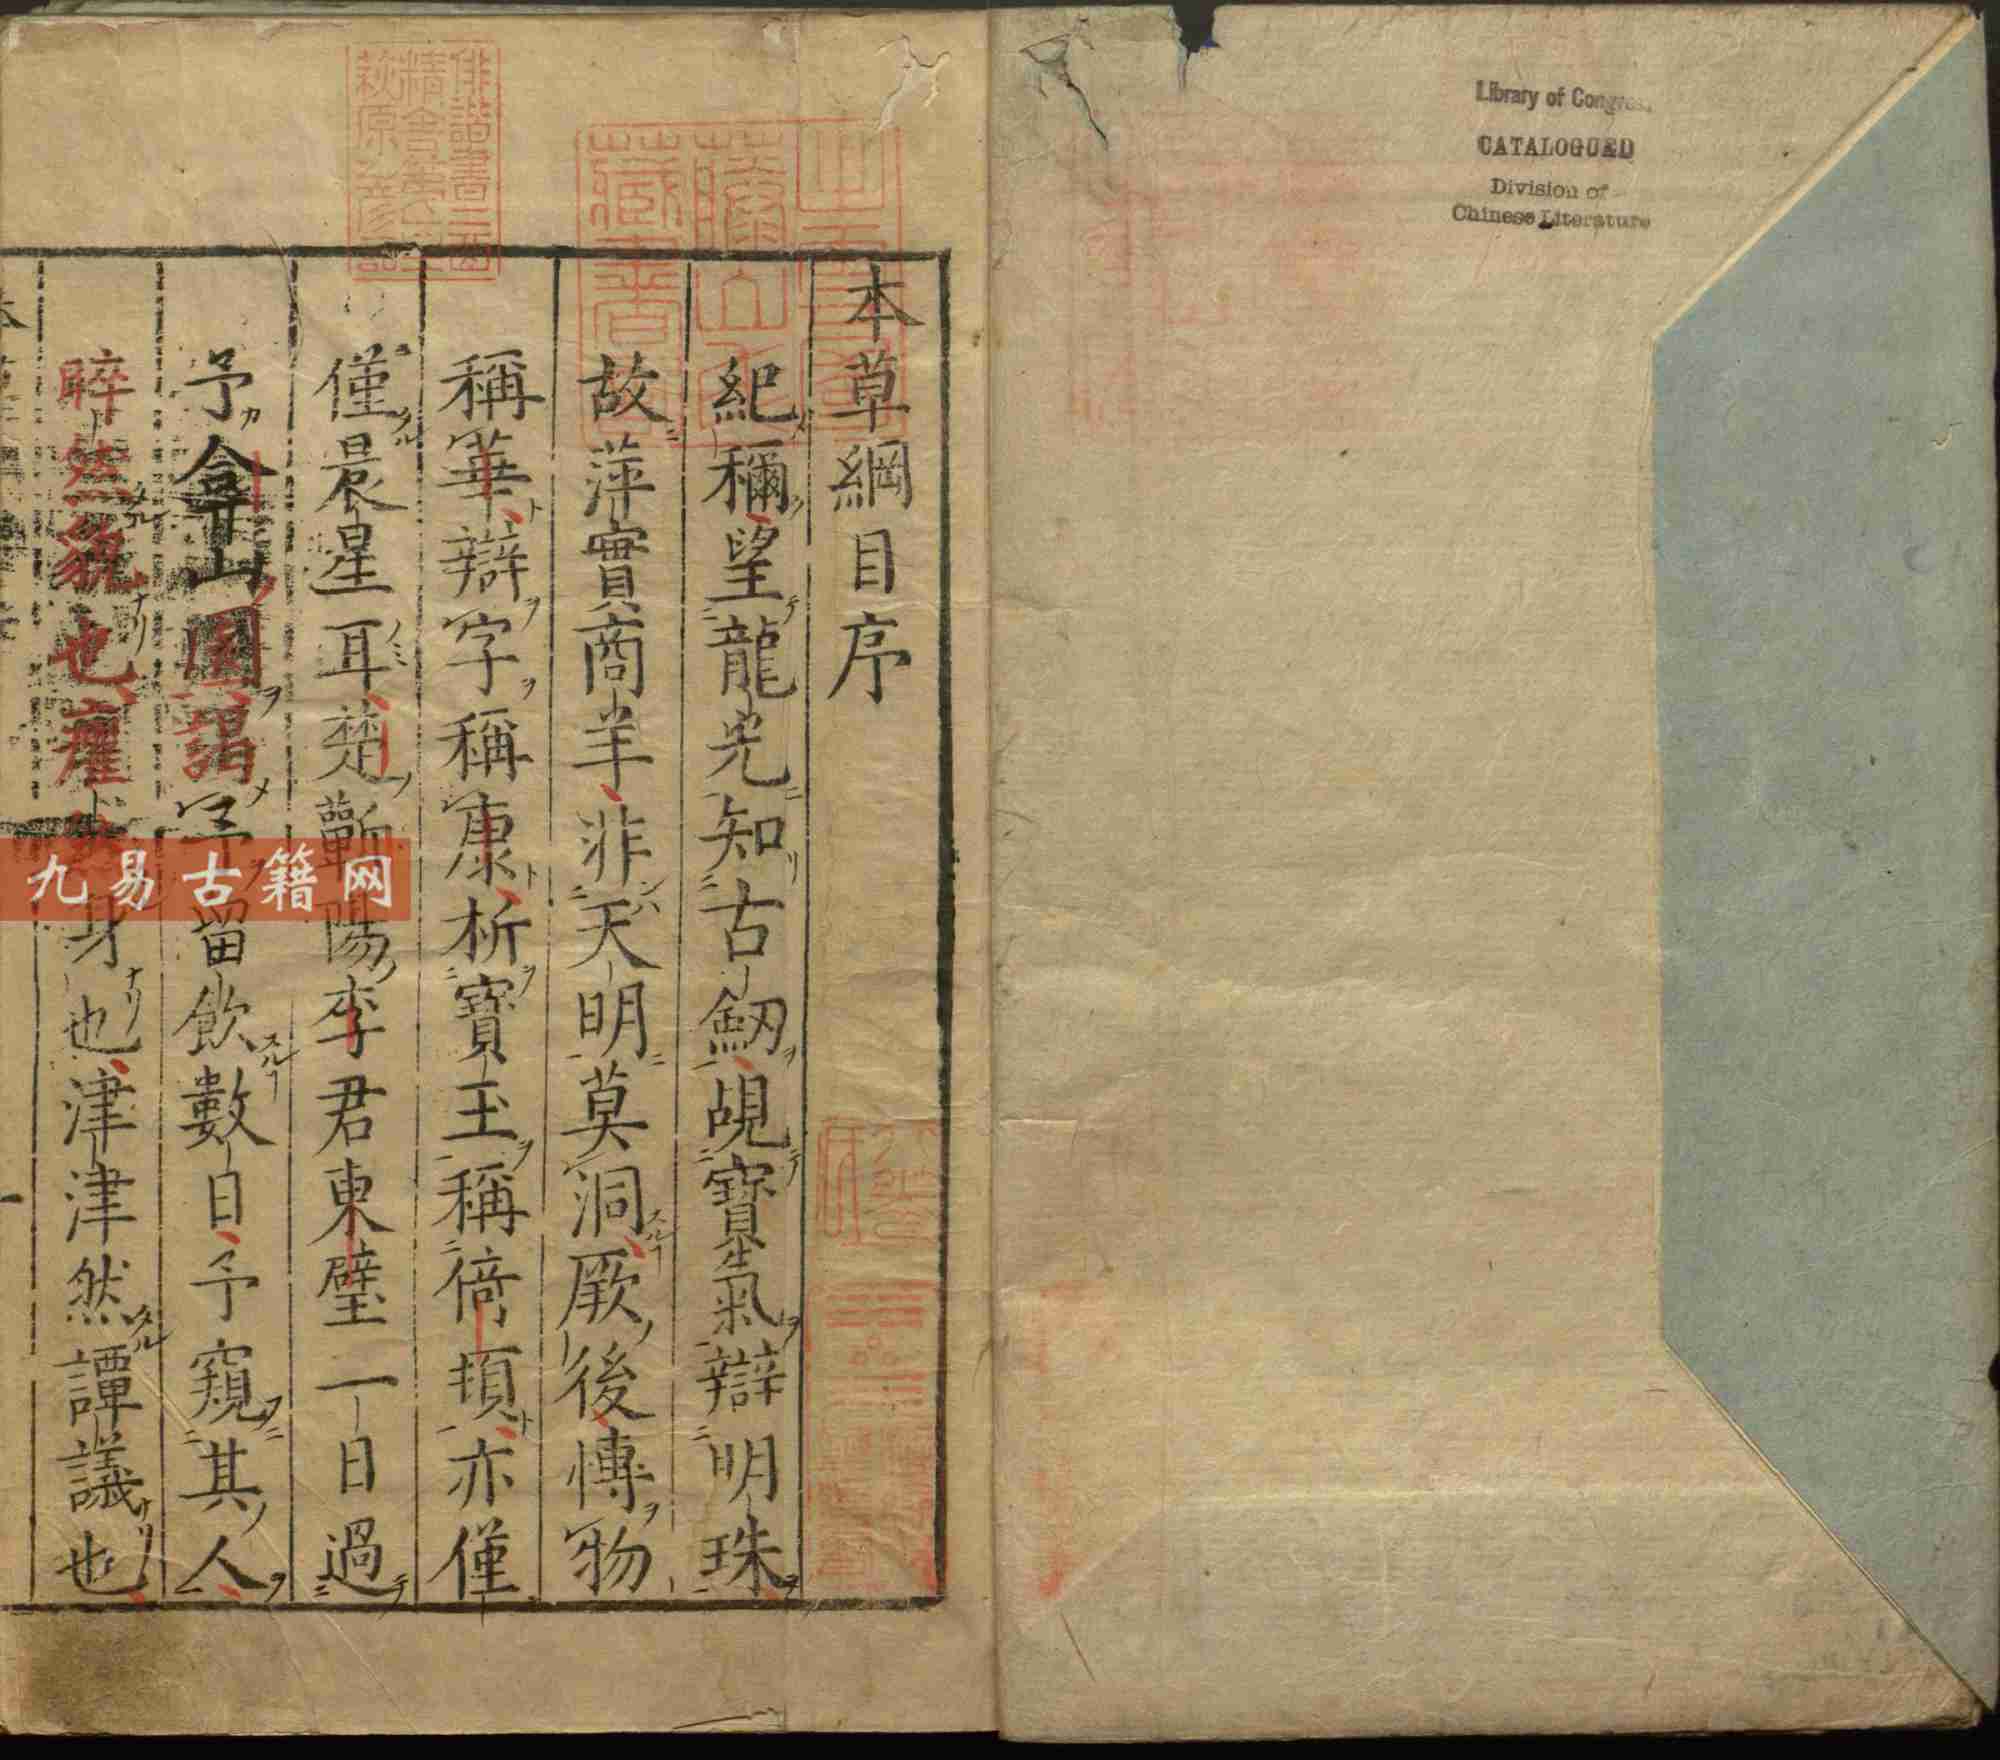 Library of Congress
CATALOGUED
Division of
Chinese Literature
本草綱目序
紀稱望龍光知古劒覘寶氣辯明珠
故萍實商羊非天明莫洞厥後博物
稱華辯字稱康析寶玉稱倚頓亦僅
僅晨星耳楚蘄陽李君東璧一日過
予弇山園謁予留飲數日予窺其人
睟然貌也癯然身也津津然譚議也
九易古籍网